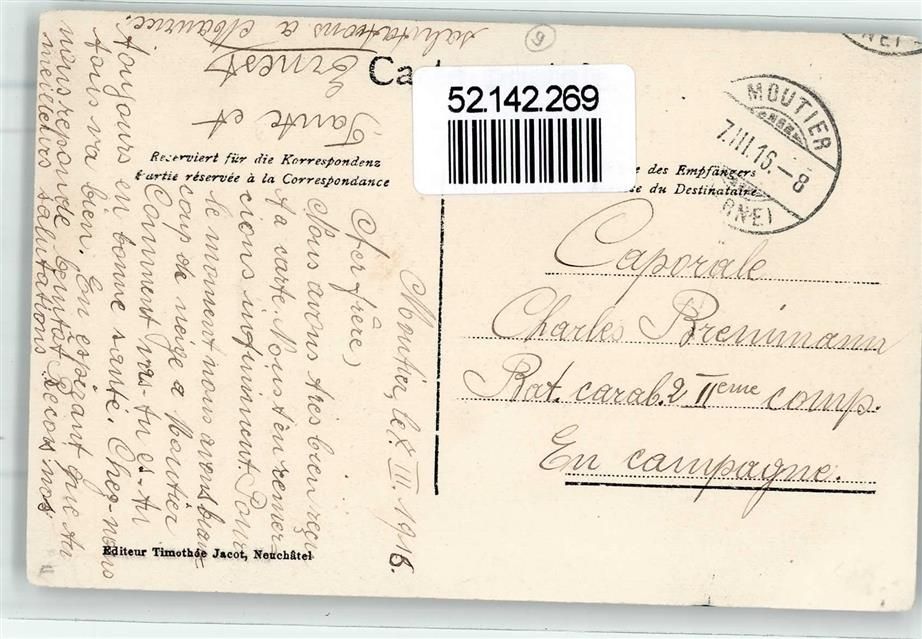 Ca
52.142.269
Reserviert für die Korrespondenz
Partie réservée à la Correspondance
des Empfängers
du Destinataire
MOUTIER
7.III.16.-8
(BNE)
NE)
9
Caporale
Charles Brenimann
Bat. carab. 2 IIeme comp.
En campagne.
Moutier, le 7 III 1916.
Cher frère,
Nous avons très bien reçu
ta carte. Nous t'en remer
cions infiniment. Pour
le moment nous avons beau
coup de neige a Moutier
Comment vas-tu es-tu
toujours en bonne santé. Chez-nous
tous va bien. En espérant que tu
nous réponde bientôt Reçois nos
meilleurs salutations
Tante et
Ernest
salutations a Maurice.
Editeur Timothée Jacot, Neuchâtel